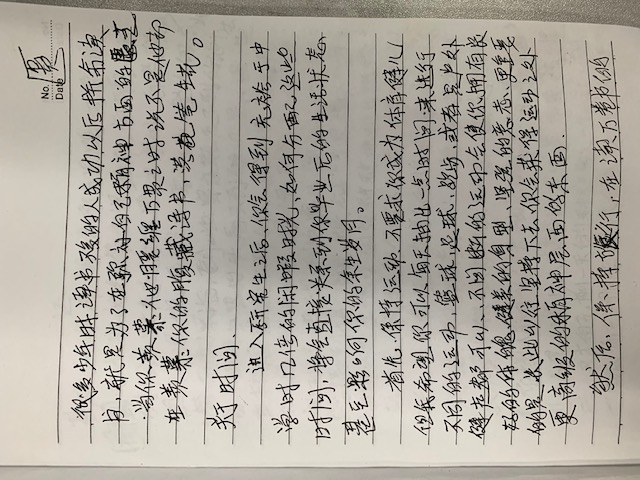 No.
Date
很多少年时读书不多的人成功以后拼命读
书,就是为了在弥补自己精神方面的匮乏
当你羡慕他腰缠万贯之时说不定他却
在羡慕你的腹藏诗书,洪苑笔耗。
关于时间.
进入研究生之后,你会得到充裕于中
学时几倍的闲暇时光,如何分配这些
时间,将会直接关系到你毕业后的生活状态,
甚至影响你的余生岁月。
首先,保持运动,不要求你成为体育健儿
但我希望你可以每天抽出一点时间来进行
不同的运动,篮球,足球,跑步,或者是户外
健走都可以,不间断的运动会使你拥有良
好的体魄,健美的身型、坚强的意志,更重要
的是长此以往坚持下去你会获得运动之外
更高级的精神层面的东西.
然后,保持旅行,在读万卷书的